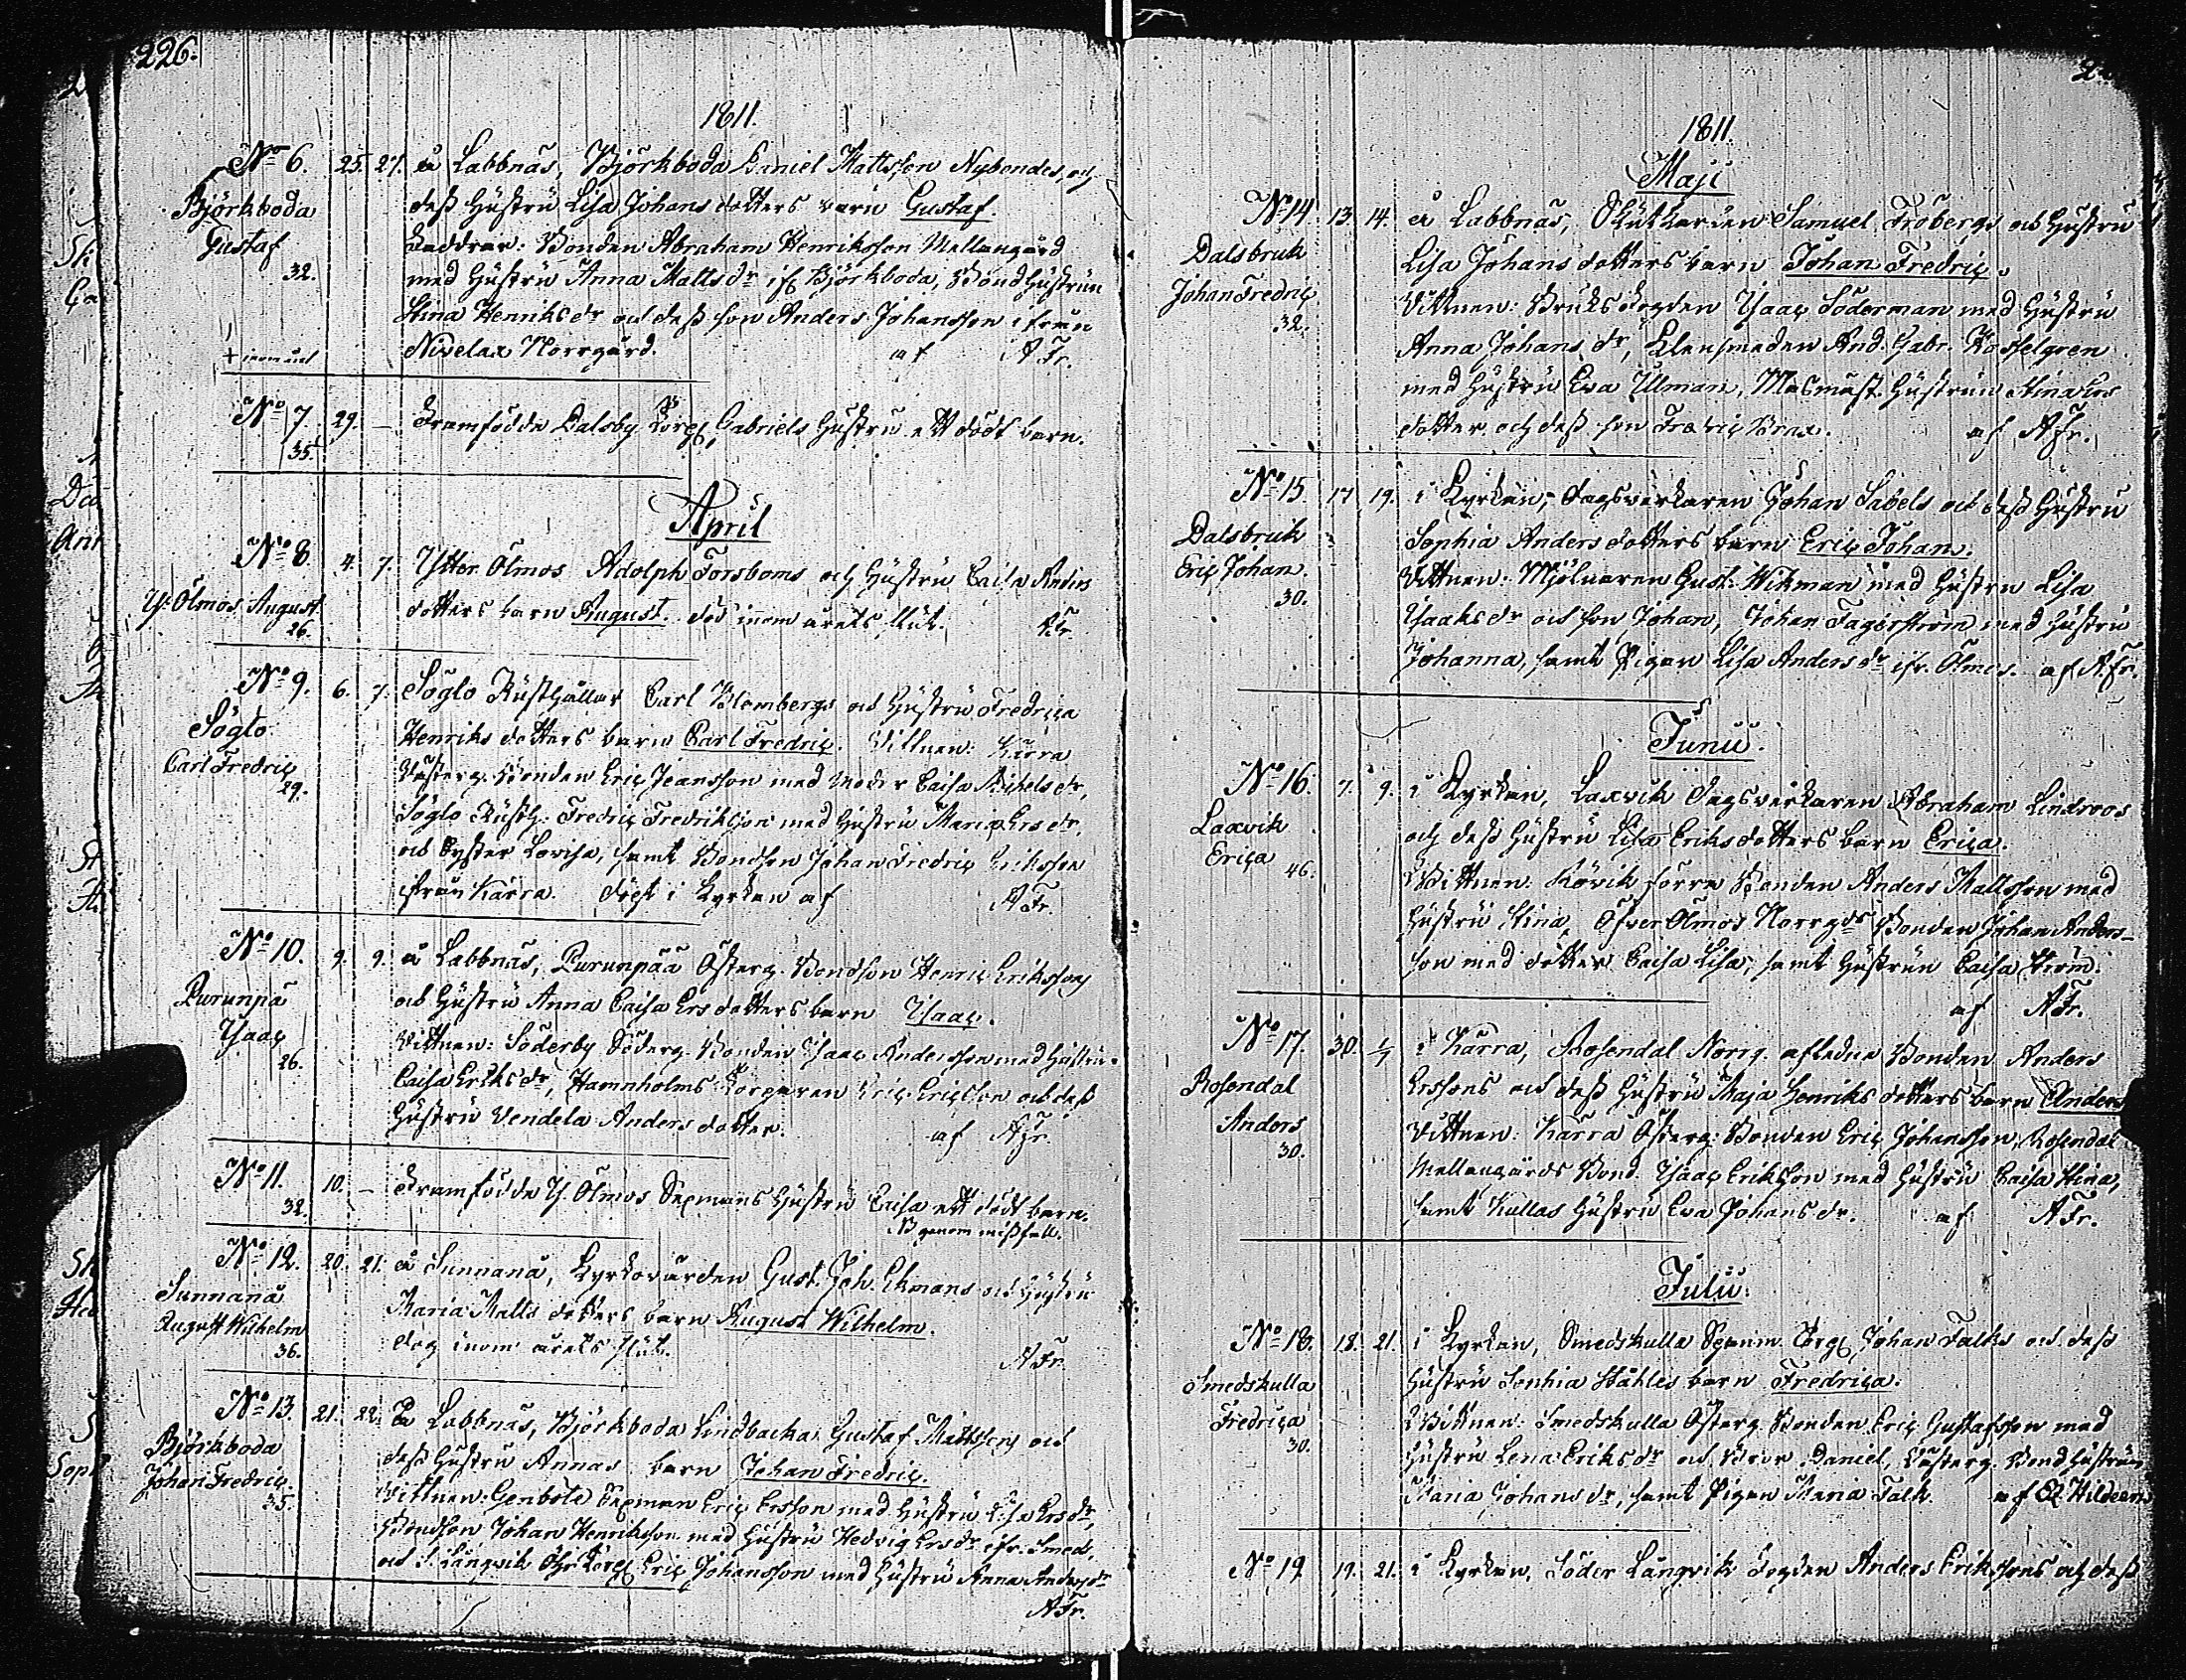 226.
1811.
No 6. 25. 27. å Labbnäs, Björkboda Daniel Mattsson Nybondes, och
Björkboda dess Hustru Lisa Johans dotters barn Gustaf.
Gustaf Faddrar: Bonden Abraham Henriksson Mellangård
32. med Hustru Anna Matts dr ifr Björkboda, Bondhustrun
Stina Henriks dr och dess son Anders Johansson ifrån
Nivelax Norrgård. af A Fr.
No 7. 29. — Framfödde Dalsby Gabriels Hustru ett dödt barn.
35.
April
No 8. 4. 7. Ytter Ölmos Adolph Forsboms och Hustru Caisa Anders
Y. Ölmos August dotters barn August. död inom årets slut. A Fr.
26.
No 9. 6. 7. Söglo Rusthållar Carl Blombergs och Hustru Fredrica
Söglo Henriks dotters barn Carl Fredric. Vittnen: Kärra
Carl Fredric Västerg. Bonden Eric Jeansson med moder Caisa Mikels dr,
29. Söglo Rusth. Fredric Fredriksson med Hustru Maria Ers dr,
och Syster Lovisa, samt Bondson Johan Fredric Eriksson
ifrån Kärra. Döpt i Kyrkan af A Fr.
No 10. 9. 9. å Labbnäs, Purunpää Österg. Bondson Henric Erikssons
Purunpä och Hustru Anna Caisa Ers dotters barn Isaac.
Isaac Vittnen: Söderby Söderg. Bonden Isaac Andersson med Hustru
26. Caisa Eriks dr, Hamnholms Torparen Eric Ericsson och dess
Hustru Vendela Anders dotter. af A Fr.
No 11. 10. — Framfödde Y. Ölmos Sexmans Hustru Caisa ett dödt barn.
32. genom missfall.
No 12. 20. 21. å Sunnanå, Kyrkovärden Gust. Joh. Ekmans och Hustru
Sunnanå Maria Matts dotters barn August Wilhelm.
August Wilhelm dog inom årets slut. A Fr.
36.
No 13. 21. 22. å Labbnäs, Björkboda Lindbacka Gustaf Mattssons och
Björkboda dess Hustru Annas barn Johan Fredric.
Johan Fredric Vittnen: Genböle Sexman Eric Ersson med Hustru Lisa Ers dr,
35. Bondson Johan Henriksson med Hustru Hedvig Ers dr ifr. Smeds,
och S. Långvik Eric Johansson med Hustru Anna Anders dr
A Fr.
1811.
Maji
No 14 13. 14. å Labbnäs, Samuel Frobergs och Hustru
Dalsbruk Lisa Johans dotters barn Johan Fredric.
Johan Fredric Vittnen: Bruksfogden Isaac Söderman med Hustru
32. Anna Johans dr, Klensmeden And. Gabr. Hasselgren
med Hustru Eva Ulman, Masmäst. Hustrun Stina Ers
dotter och dess son Fredric Brax. af A Fr.
No 15. 17. 19. i Kyrkan, dagsverkaren Johan Sabels och dess Hustru
Dalsbruk Sophia Anders dotters barn Eric Johan.
Eric Johan. Vittnen: Mjölnaren Gust. Wikman med Hustru Lisa
30. Isaaks dr och son Johan, Johan Fagerström med Hustru
Johanna, samt Pigan Lisa Anders dr ifr. Ölmos. af A Fr.
Junii.
No 16. 7. 9. i Kyrkan, Laxvik dagsverkaren Abraham Lindroos
Laxvik och dess Hustru Lisa Eriks dotters barn Erica.
Erica 46. Vittnen: Rövik förra Bonden Anders Mattsson med
Hustru Stina, Öfver Ölmos Norrgds Bonden Johan Anders-
son med dotter Caisa Lisa, samt Hustrun Caisa Ström.
af A Fr.
No 17. 30. 1/7 i Kärra, Rosendal Norrg. afledne Bonden Anders
Rosendal Erssons och dess Hustru Maja Henriks dotters barn Anders
Anders Vittnen: Kärra Österg. Bonden Eric Johansson, Rosendal
30. Mellangårds Bond. Isaac Eriksson med Hustru Caisa Stina,
samt Kullas Hustru Eva Johans dr. af A Fr.
Julii.
No 18. 18. 21. i Kyrkan, Smedskulla Johan Falks och dess
Smedskulla Hustru Sophia Ståhles barn Fredrica.
Fredrica Vittnen: Smedskulla Österg. Bonden Eric Gustafsson med
30. Hustru Lena Eriks dr och Broder Daniel, Västerg. Bondhustrun
Maria Johans dr, samt Pigan Maria Falk. af Hildeen
No 19 19. 21. i Kyrkan, Söder Långvik Anders Erikssons och dess